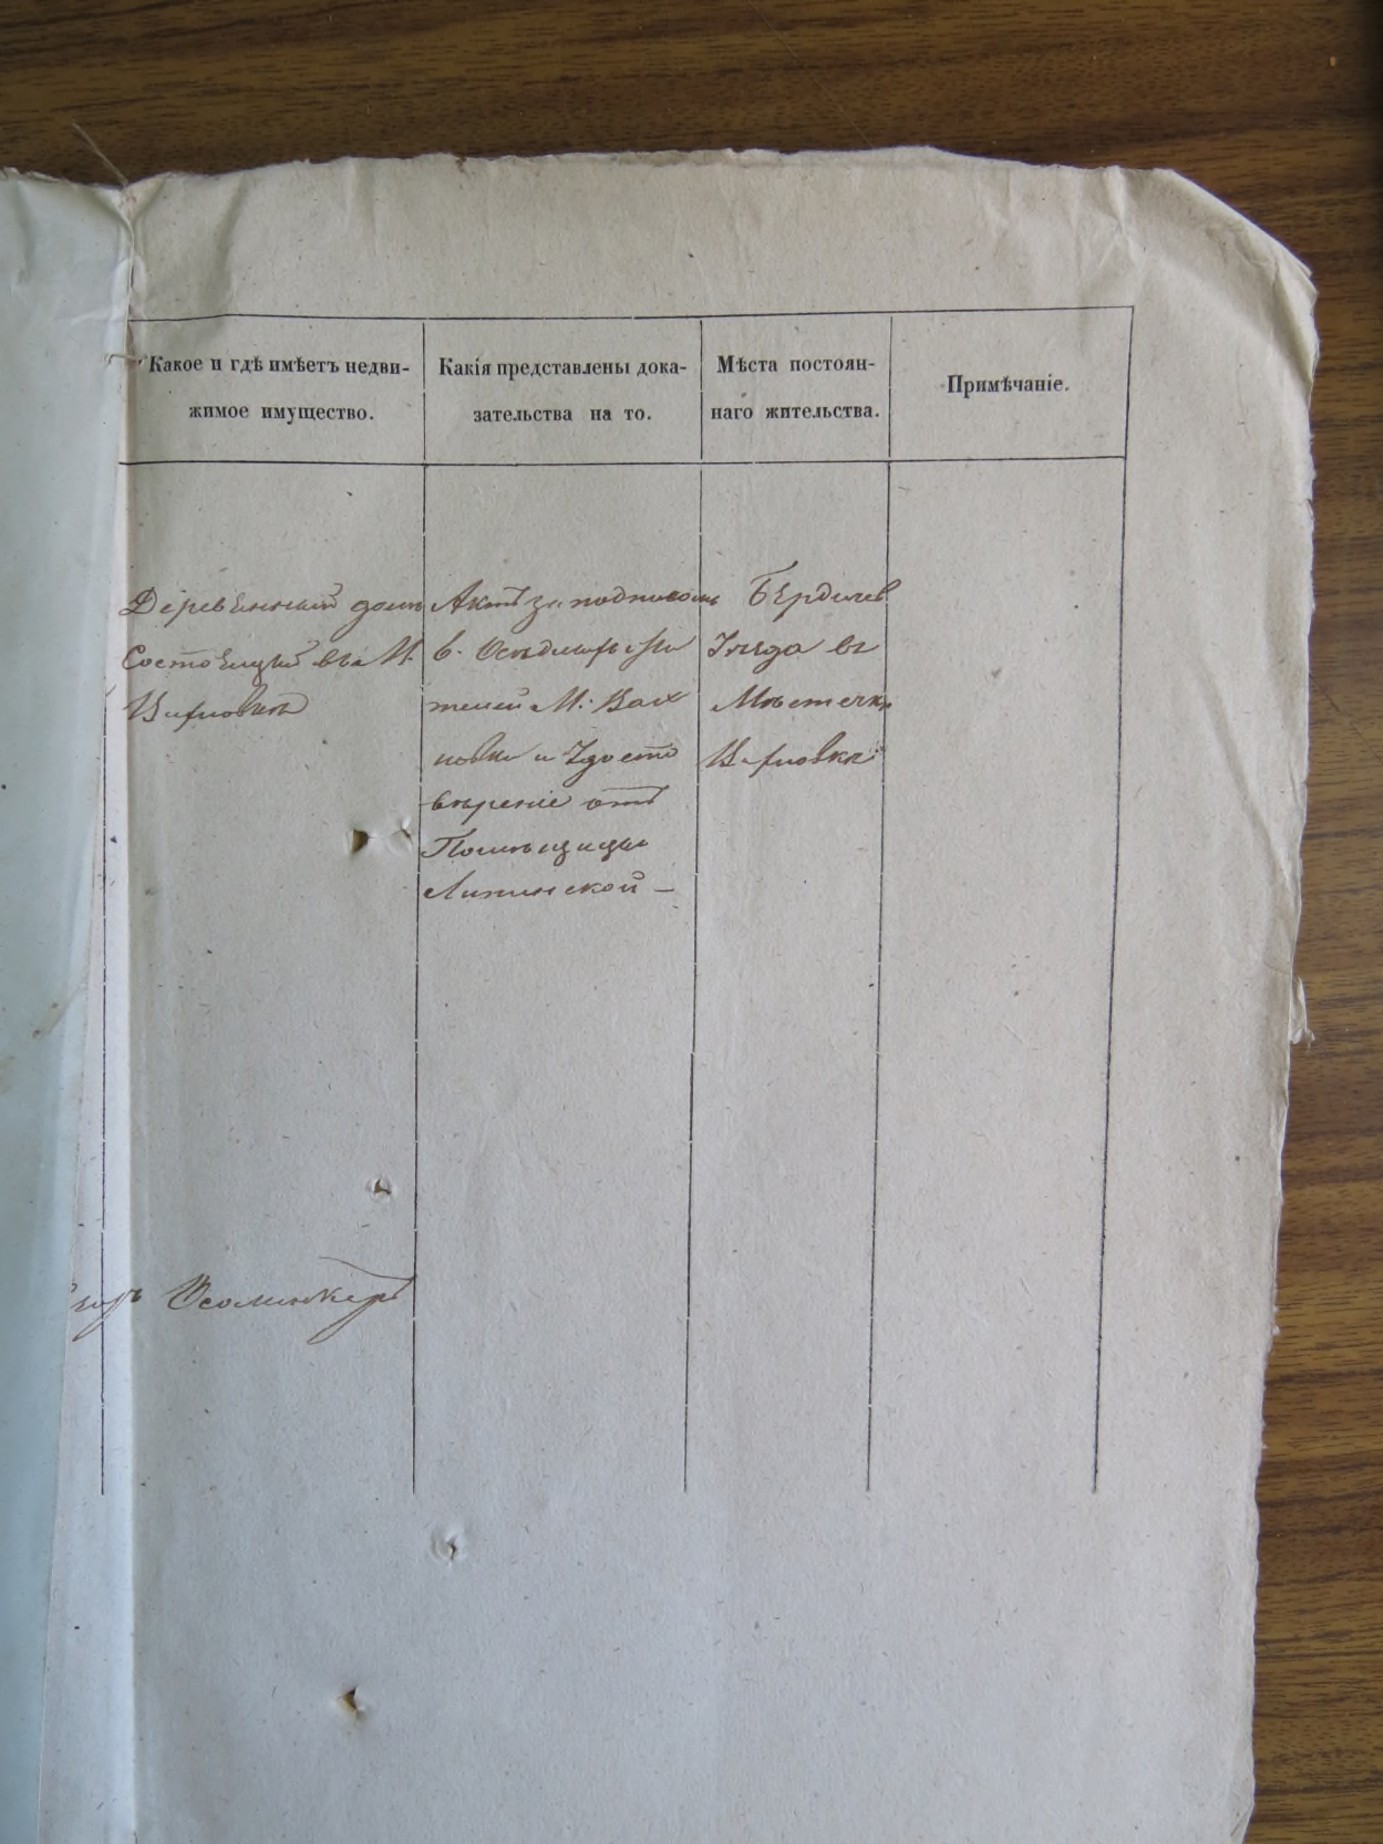 Какое и гдѣ имѣетъ недви-
жимое имущество.
Какія представлены дока-
зательства на то.
Мѣста постоян-
наго жительства.
Примѣчаніе.
Деревянный домъ
Состоящій въ М.
Актъ за подписомъ
6.
телей М. Вах
новки и Удосто
вѣреніе отъ
Помѣщицы
Липинской —
Бердичев
Уѣзда въ
Мѣстечкѣ